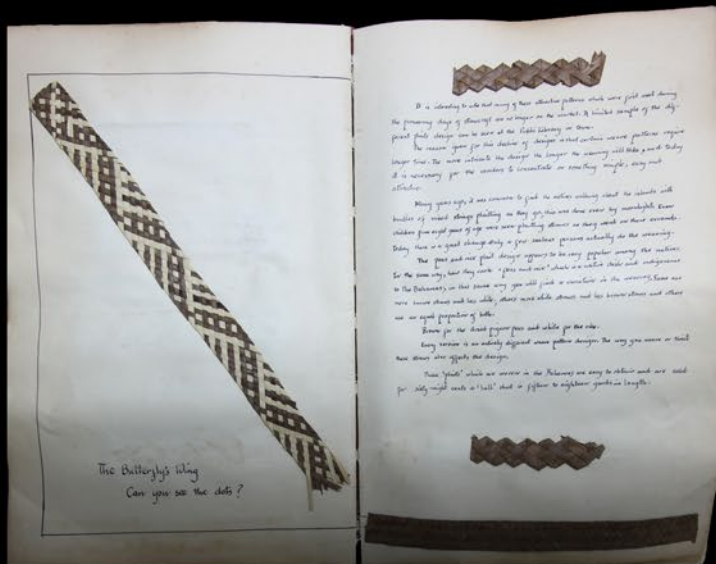 The Butterfly's Wing
Can you see the dots?
It is interesting to note that many of these attractive patterns which were first used during
the pioneering days of strawcraft are no longer on the market. A limited sample of the dif-
ferent plaits design can be seen at the Public Library in town.
The reason given for this decline of designs is that certain weave patterns require
longer time. The more intricate the design the longer the weaving will take, and today
it is necessary for the vendors to concentrate on something simple, being most
attractive.
Many years ago, it was common to find the natives walking about the islands with
bundles of mixed straws plaiting as they go, this was done even by moonlight. Even
children five eight years of age were seen plaiting straws as they went on their errands.
Today there is a great change. Only a few senior persons actually do the weaving.
The peas and rice plait design appears to be very popular among the natives.
In the same way, how they cook "peas and rice" which is a native dish and indigenous
to the Bahamas, in that same way you will find a variation in the weaving. Some use
more brown straws and less white, others more white straws and less brown straws and others
use an equal proportion of both.
Brown for the dried pigeon peas and white for the rice.
Every version is an entirely different weave pattern design. The way you weave or twist
these straws also affects the design.
These "plaits" which are woven in the Bahamas are easy to obtain and are sold
for sixty-eight cents a "ball" that is fifteen to eighteen yards in length.